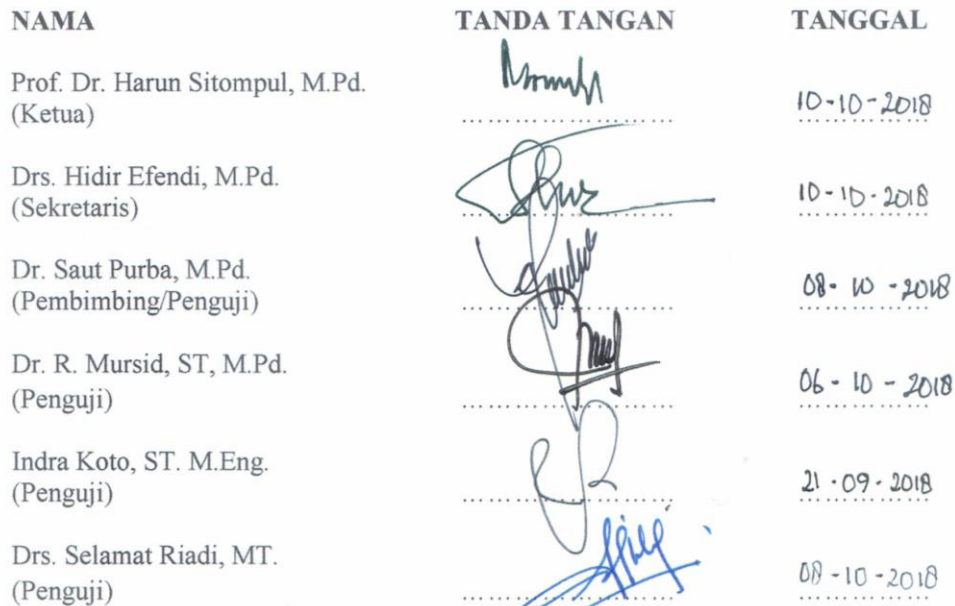 NAMA TANDA TANGAN TANGGAL
Prof. Dr. Harun Sitompul, M.Pd.
(Ketua) 10-10-2018
Drs. Hidir Efendi, M.Pd.
(Sekretaris) 10-10-2018
Dr. Saut Purba, M.Pd.
(Pembimbing/Penguji) 08-10-2018
Dr. R. Mursid, ST, M.Pd.
(Penguji) 06-10-2018
Indra Koto, ST. M.Eng.
(Penguji) 21-09-2018
Drs. Selamat Riadi, MT.
(Penguji) 08-10-2018